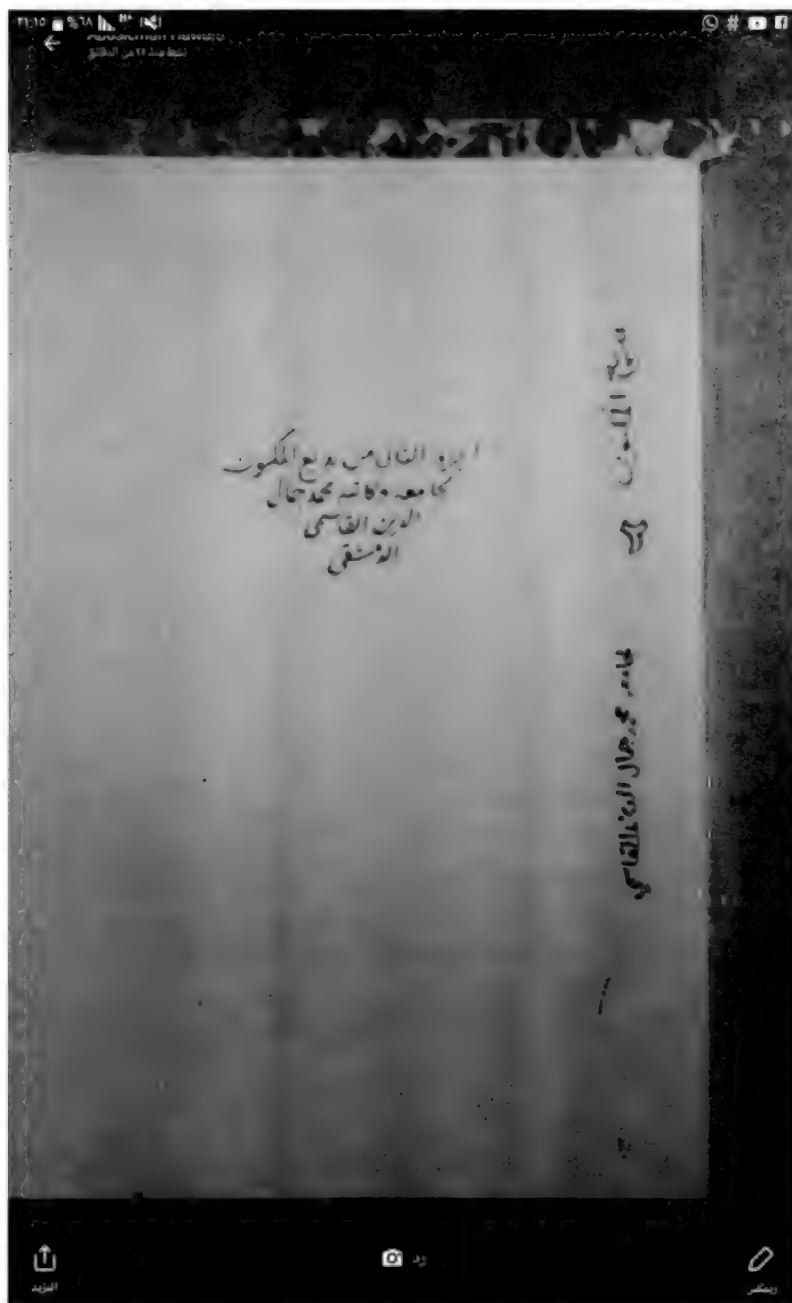 ٢١:١٥ ٦٨%
الجزء الثاني من بديع المكنون
لجامعه وكاتبه محمد جمال
الدين القاسمي
الدمشقي
بديع المكنون
٢
لجامعه محمد جمال الدين القاسمي
المزيد
رد
ريمكس